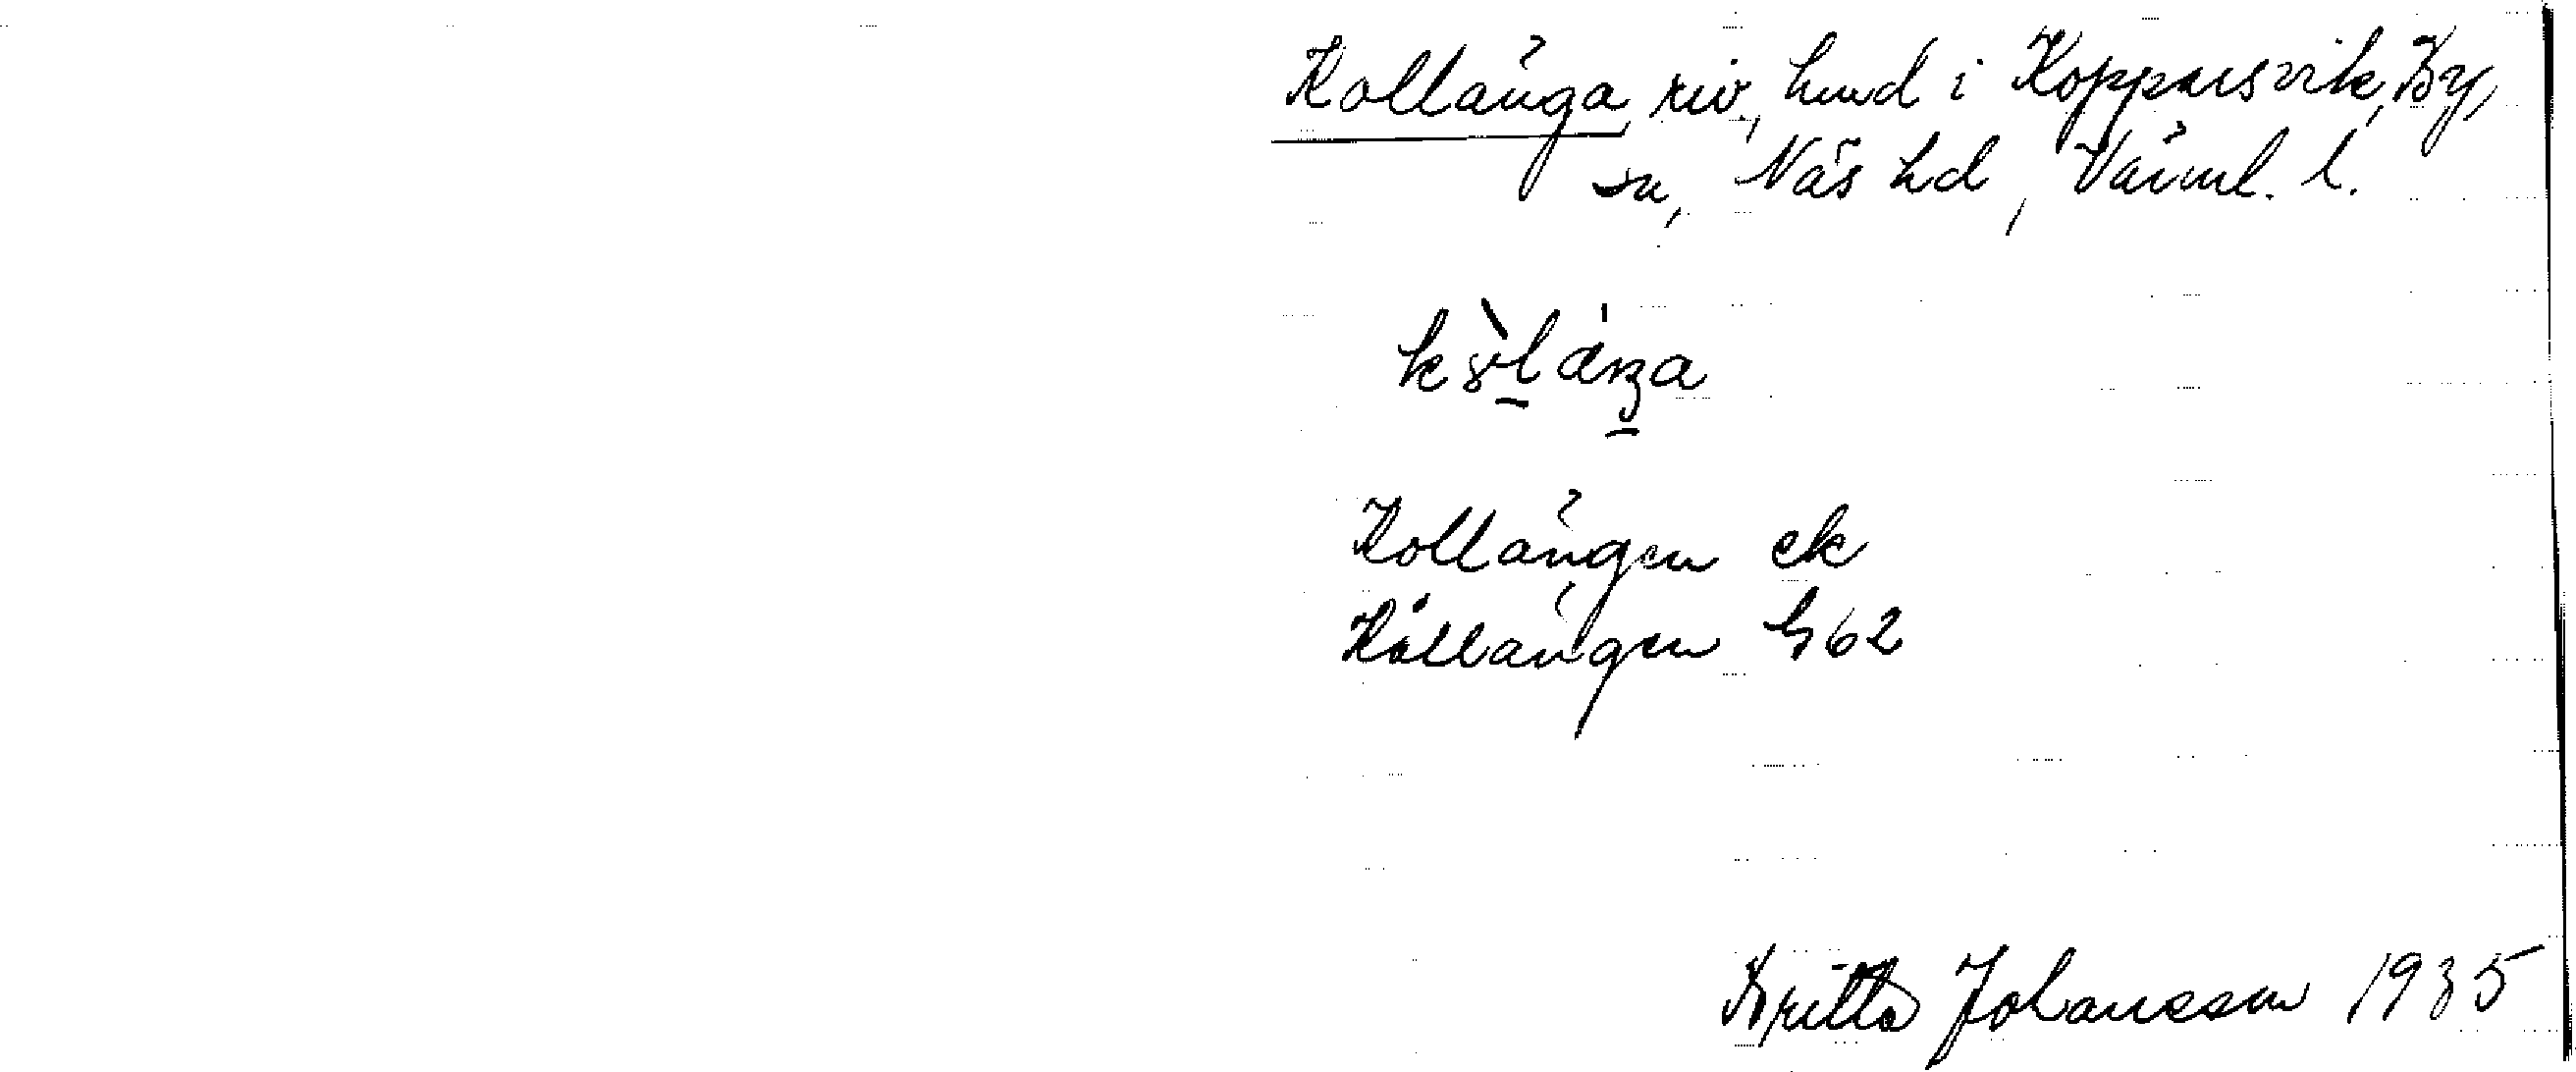 Kollänga, riv., hmd i Kopparsvik, By,
sn, Näs hd, Värml. l.
Kollängen ek
Kållängen h62
Britta Johansson 1935